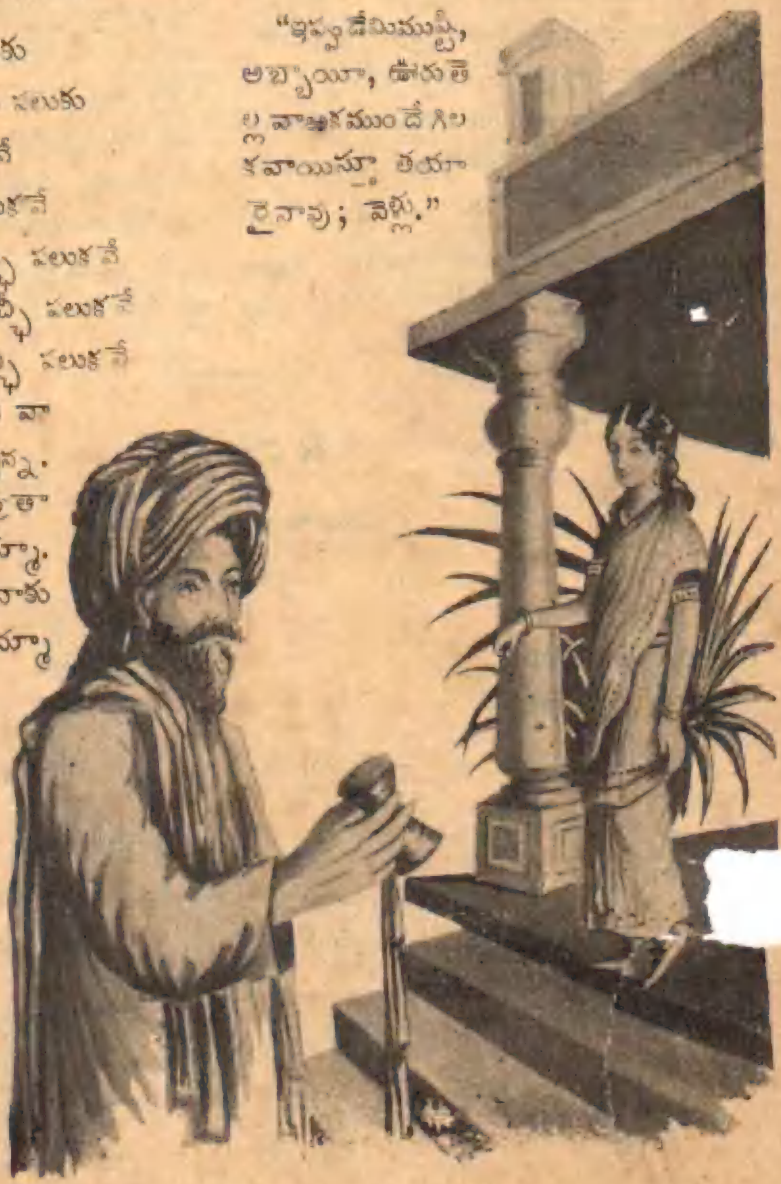 కు
పలుకు
వే
పలుకవే
పలుకవే
పలుకవే
వా
న్న.
తా
మ్మా.
నాకు
మ్మా
“ఇప్పడేమిముష్టి,
అబ్బాయీ, ఊరు తె
ల్ల వాఱకముందే గిల
కవాయిస్తూ తయా
రైనావు; వెళ్లు.”